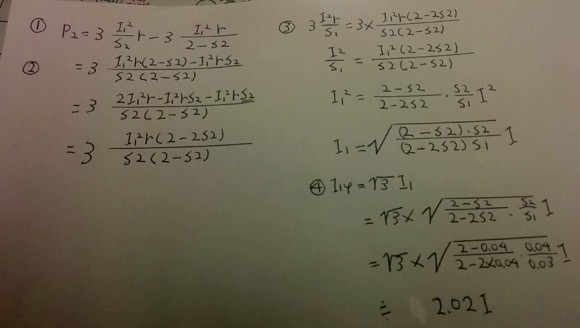 ① P₂ = 3 I₁²/S₂ r - 3 I₁² r/(2-S2)
② = 3 (I₁²r(2-S2) - I₁²rS₂)/(S2(2-S2))
= 3 (2I₁²r - I₁²rS₂ - I₁²rS₂)/(S2(2-S2))
= 3 I₁²r(2-2S2)/(S2(2-S2))
③ 3 I²r/S₁ = 3× I₁²r(2-2S2)/(S2(2-S2))
I²/S₁ = I₁²(2-2S2)/(S2(2-S2))
I₁² = (2-S2)/(2-2S2) · S2/S₁ I²
I₁ = √((2-S2)·S2/((2-2S2)S₁)) I
④ I₁φ = √3 I₁
= √3 × √((2-S2)/(2-2S2) · S2/S₁) I
= √3 × √((2-0.04)/(2-2×0.04) · 0.04/0.03) I
≒ 2.02 I